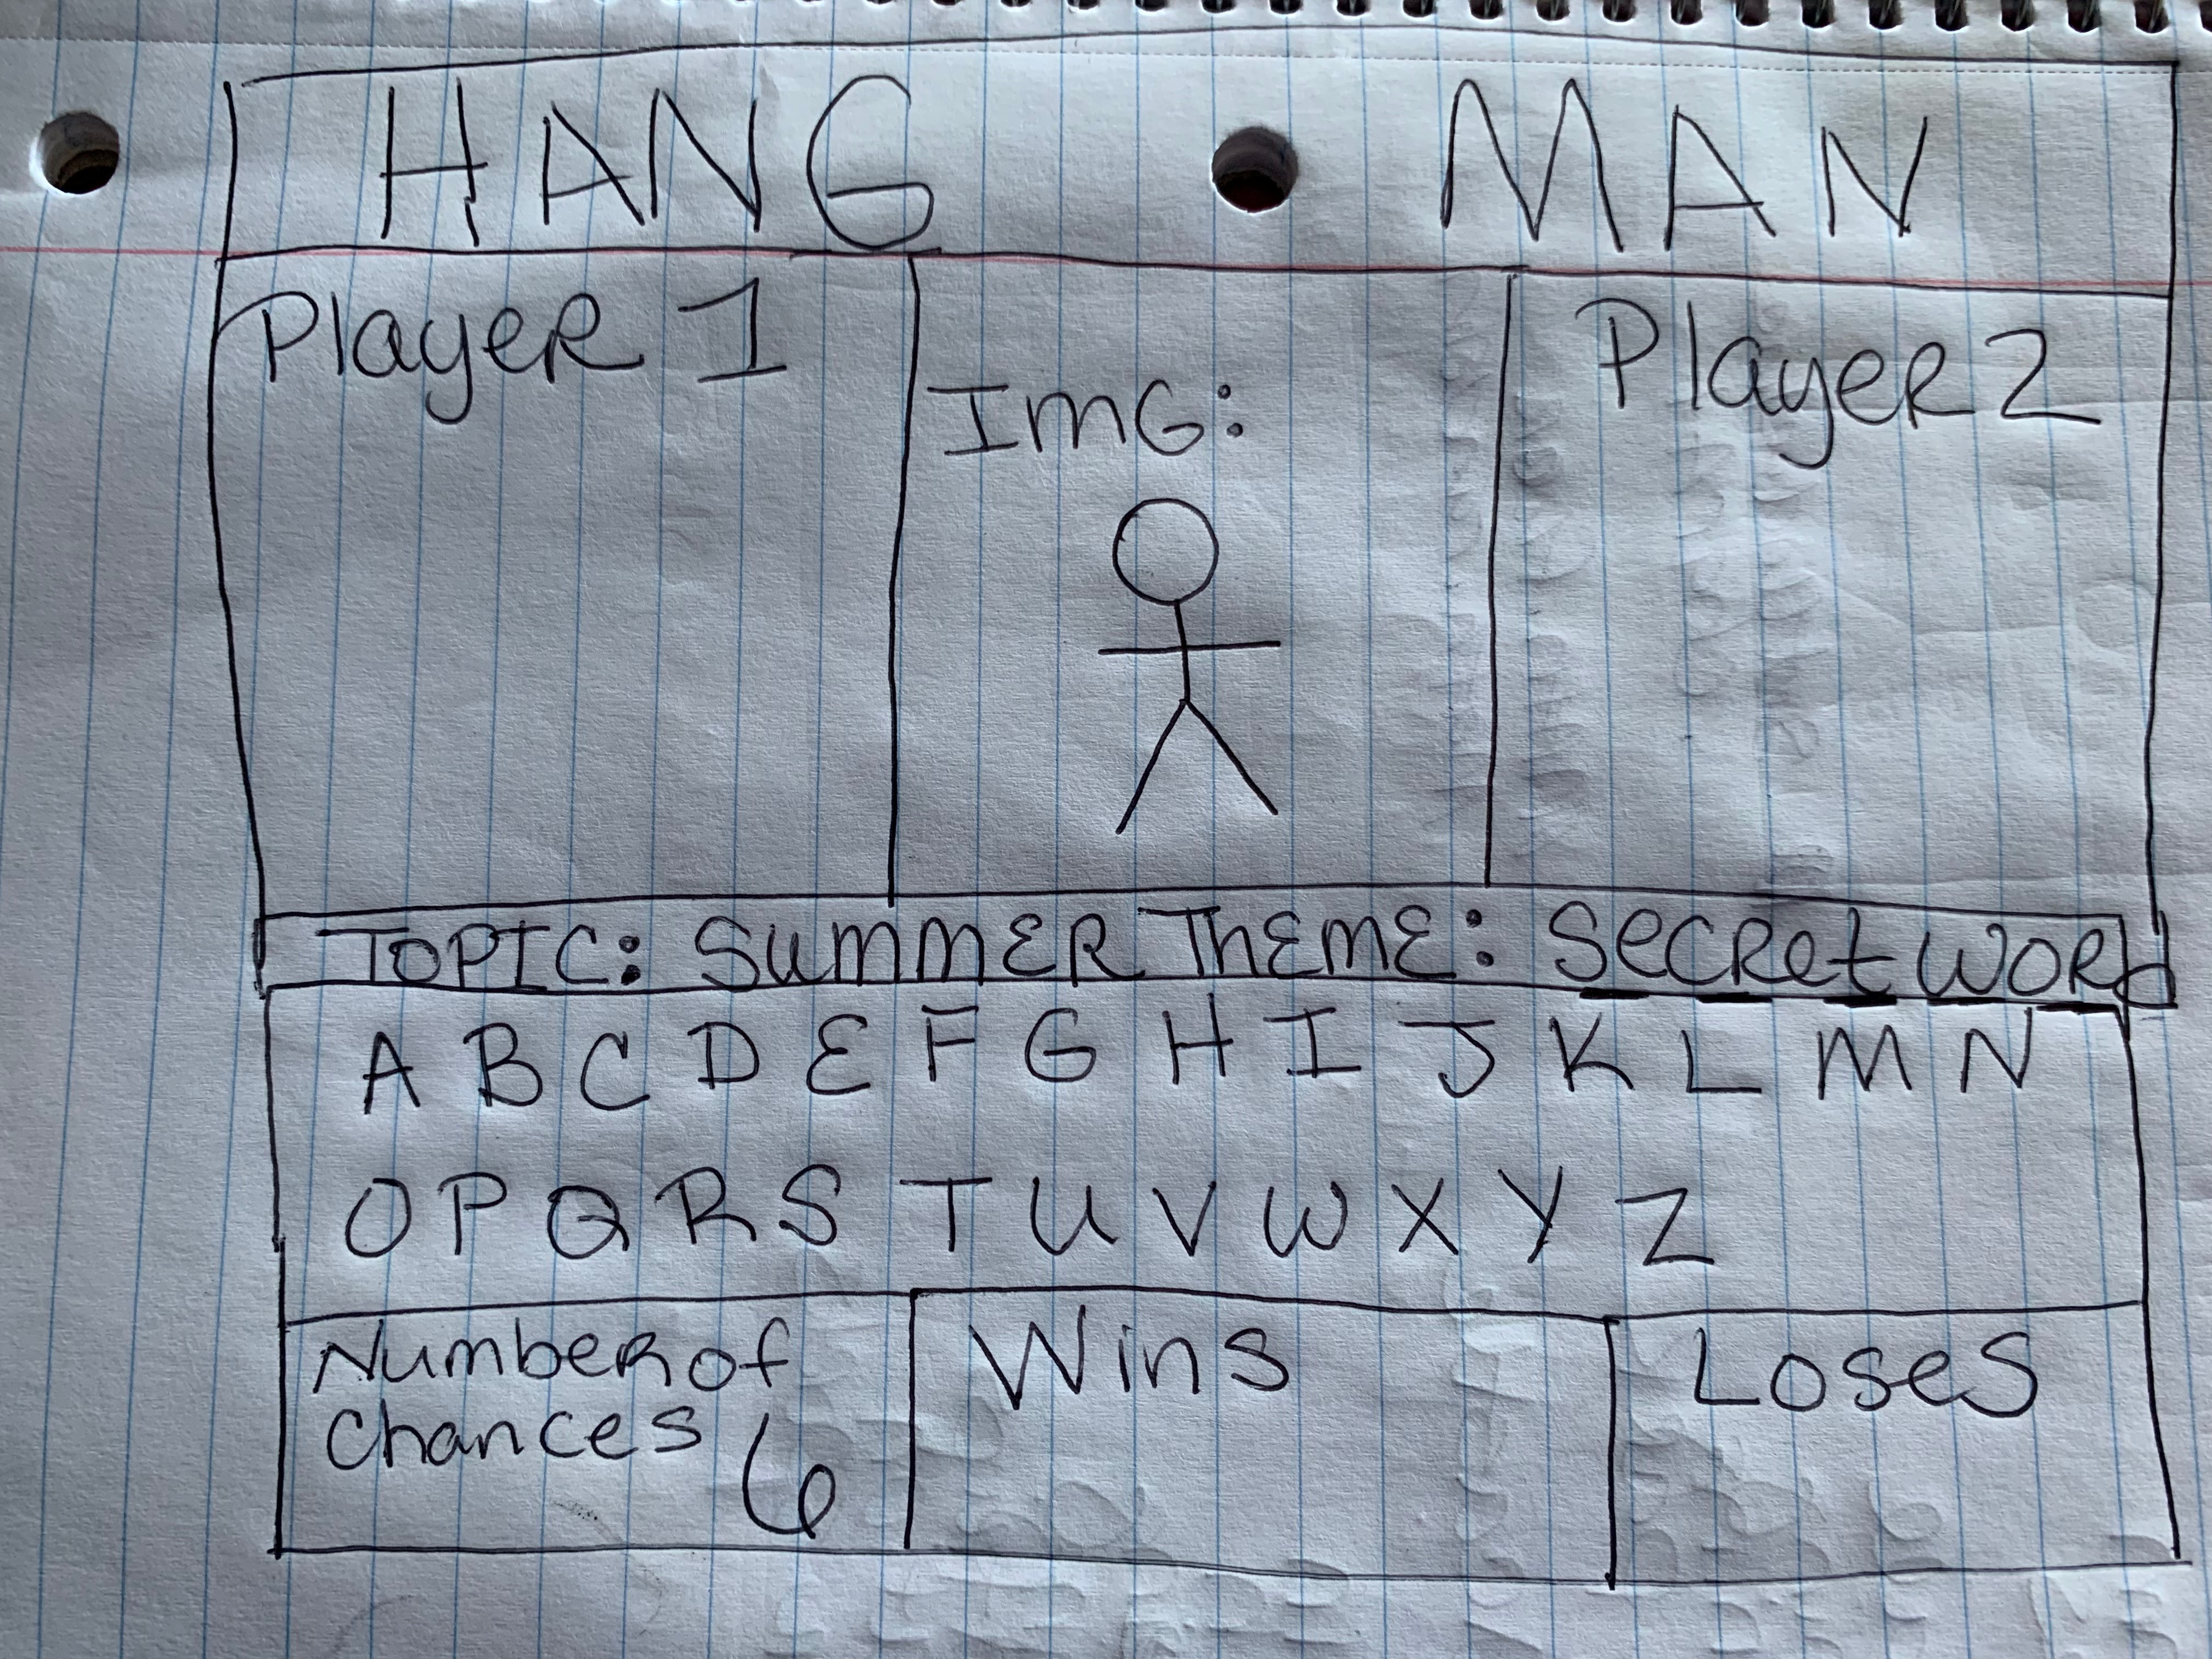 HANG MAN
PlayeR 1
ImG:
PlayeR 2
TOPIC: SummER ThEmE: SecRet WORd
A B C D E F G H I J K L M N
O P Q R S T U V W X Y Z
NumbeR of
Chances 6
Wins
Loses